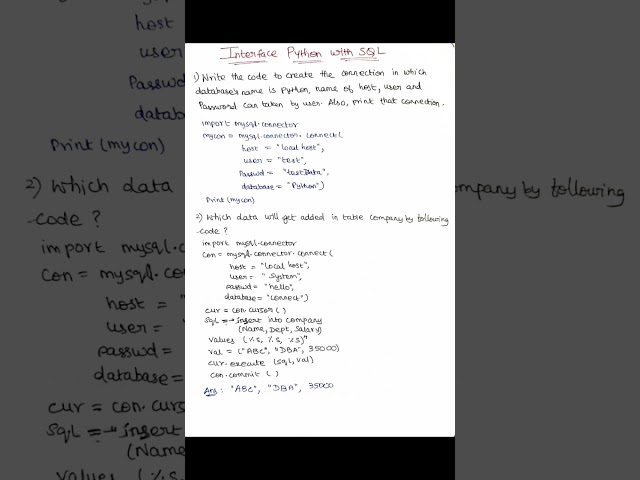 Interface Python with SQL
1) Write the code to create the connection in which
database's name is Python, name of host, user and
Password can taken by user. Also, print that connection.
import mysql.connector
mycon = mysql.connector.connect(
host = "local host",
user = "test",
Passwd = "testData",
database = "Python")
Print (mycon)
2) Which data will get added in table company by following
code ?
import mysql.connector
Con = mysql.connector.connect(
host = "local host",
user = "system",
passwd = "hello",
database = "connect")
cur = con.cursor( )
SQL = "insert into company
(Name, Dept, Salary)
values (%s, %s, %s)"
val = ("ABC", "DBA", 35000)
cur.execute (sql, val)
con.commit ( )
Ans : "ABC", "DBA", 35000